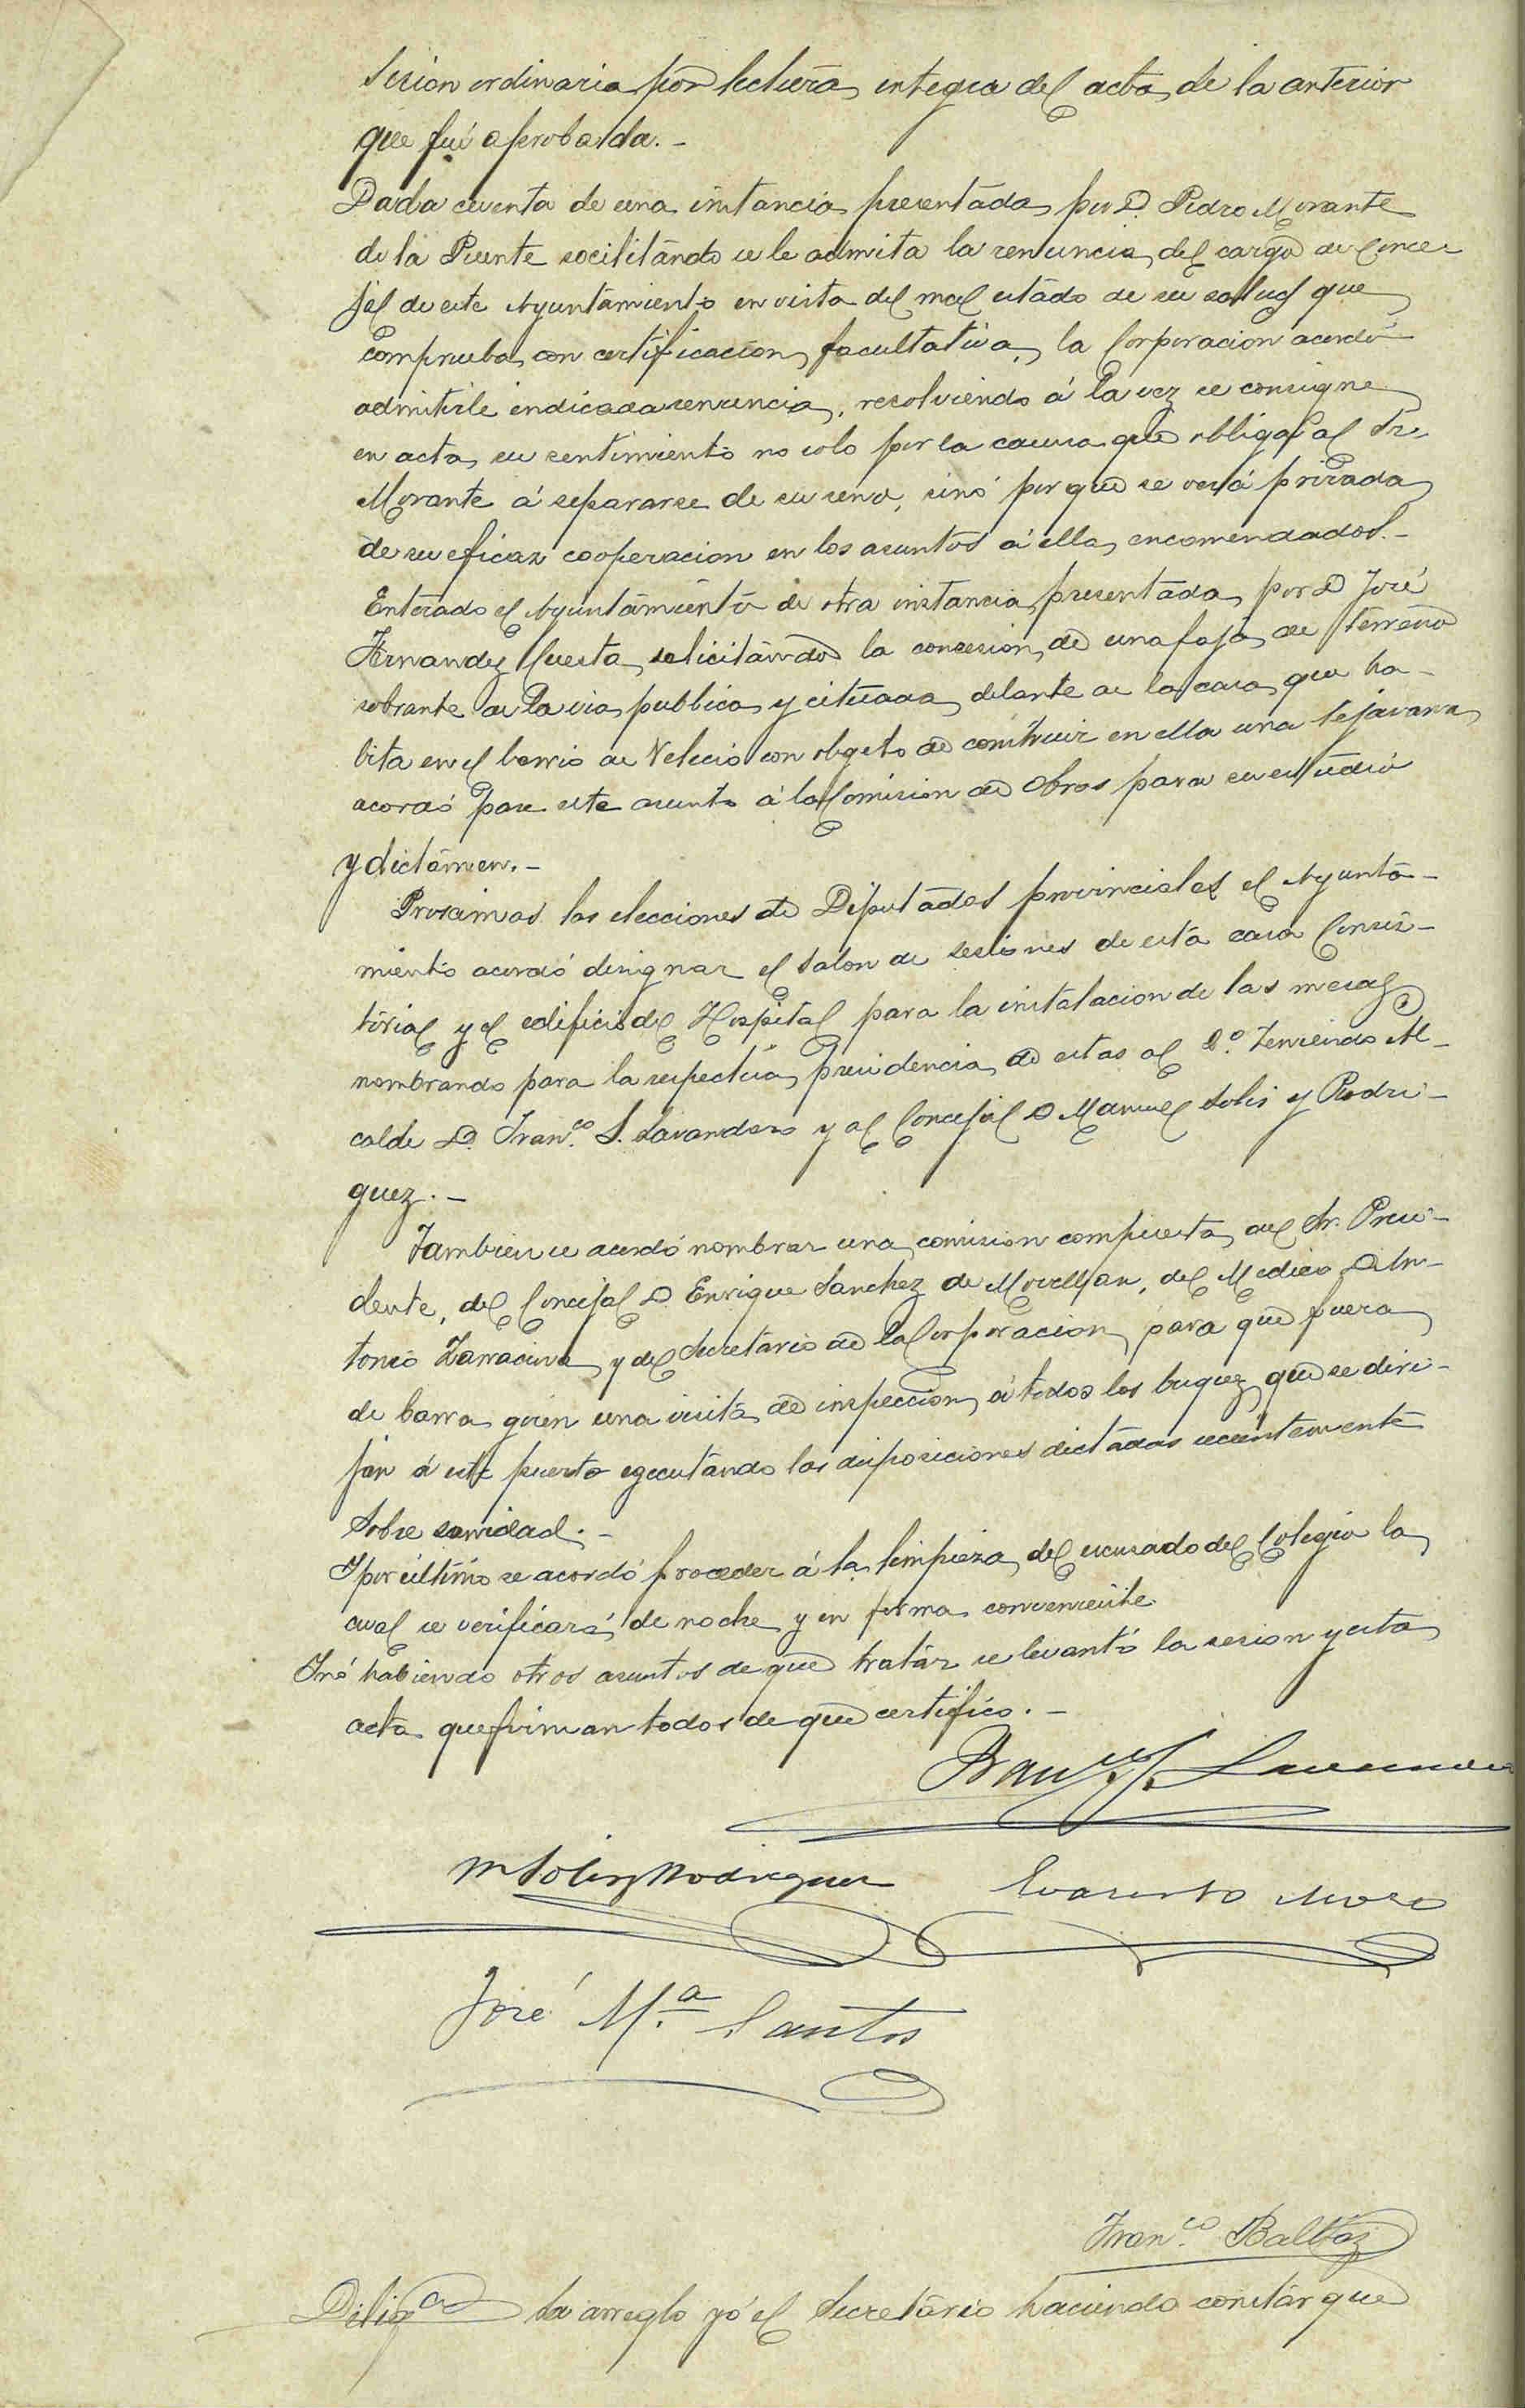 sesion ordinaria por lectura integra del acta de la anterior
que fué aprobada. -
Dada cuenta de una instancia presentada por D. Pedro Morante
de la Puente socilitando se le admita la renuncia del cargo de Conce-
jal de este Ayuntamiento en vista del mal estado de su salud que
comprueba con certificacion facultativa, la Corporacion acordó
admitirle indicada renuncia, resolviendo á la vez se consigne
en acta su sentimiento no solo por la causa que obliga al Sr.
Morante á separarse de su seno, sinó por que se verá privada
de su eficaz cooperacion en los asuntos á ella encomendados. -
Enterado el Ayuntamiento de otra instancia presentada por D José
Fernandez Cuesta solicitando la concesion de una faja de terreno
sobrante de la via publica y cituada delante de la casa que ha-
bita en el barrio de Velecio con objeto de construir en ella una tejavana
acordó pase este asunto á la Comision de Obras para su estudio
y dictámen. -
Proximas las elecciones de Diputados provinciales el Ayunta-
miento acordó designar el salon de sesiones de esta casa Consis-
torial y el edificio del Hospital para la instalacion de las mesas
nombrando para la respectiva presidencia de estas al 2.º Teniendo Al-
calde D. Fran.co S. Lavandera y al Concejal D Manuel Solis y Rodri-
guez. -
Tambien se acordó nombrar una comision compuesta del Sr. Presi-
dente, del Concejal D. Enrique Sanchez de Movellan, del Medico D An-
tonio Zarracina y del Secretario de la Corporacion para que fuera
de barra girén una visita de inspeccion á todos los buques que se diri-
jan á este puerto egecutando las disposiciones dictadas recientemente
sobre sanidad. -
Y por último se acordó proceder á la limpieza del escusado del Colegio la
cual se verificará de noche y en forma conveniente.
Y nó habiendo otros asuntos de que tratar se levantó la sesion y esta
acta que firman todos de que certifico. -
Fran.co S. Lavandera
M Solis y Rodriguez Evaristo
José M.ª Santos
Fran.co Balbás
Dilig.ª La arreglo yó el Secretario haciendo constar que